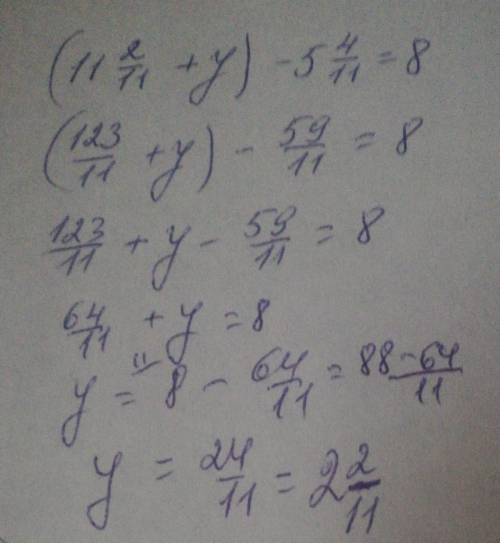 (11 2/11 + y) - 5 4/11 = 8
(123/11 + y) - 59/11 = 8
123/11 + y - 59/11 = 8
64/11 + y = 8
y = 8 11/ - 64/11 = 88-64/11
y = 24/11 = 2 2/11